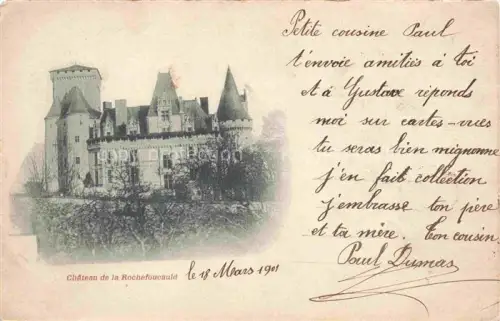 Petite cousine Paul
t'envoie amitiés à toi
et à Gustave réponds
moi sur cartes-vues
tu seras bien mignonne
j'en fait collection
j'embrasse ton père
et ta mère. Ton cousin
Paul Dumas
Château de la Rochefoucauld
le 18 Mars 1901